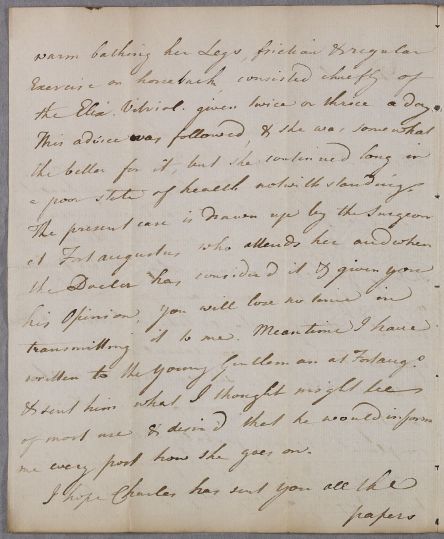 warm bathing her Legs, friction & regular
Exercise on horseback, consisted chiefly of
the Elix. Vitriol. given twice or thrice a day.
This advice was followed, & she was somewhat
the better for it, but she continued long in
a poor state of health notwithstanding.
The present case is drawn up by the Surgeon
at Fortaugustus who attends her and when
the Doctor has consider'd it & given you
his Opinion, you will lose no time in
transmitting it to me. Meantime I have
written to the young Gentleman at Fortaugs.
& sent him what I thought might be
of most use & desir'd that he would inform
me every post how she goes on.
I hope Charles has sent you all the
papers